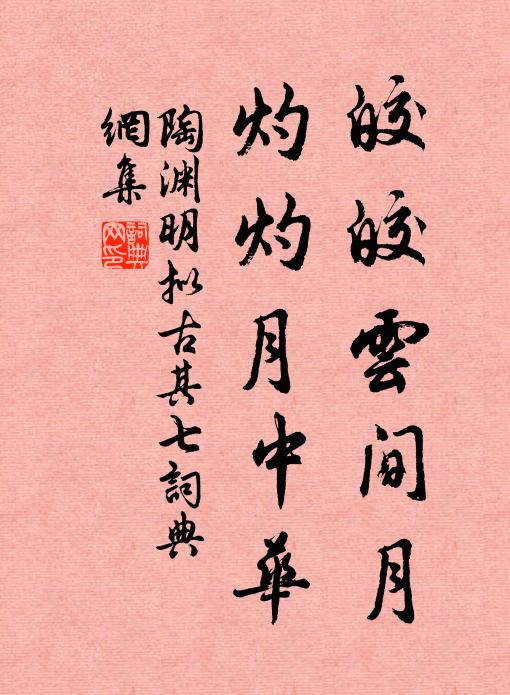 皎皎雲間月
灼灼月中華
陶渊明拟古其七詞典
網集
詞典
网印